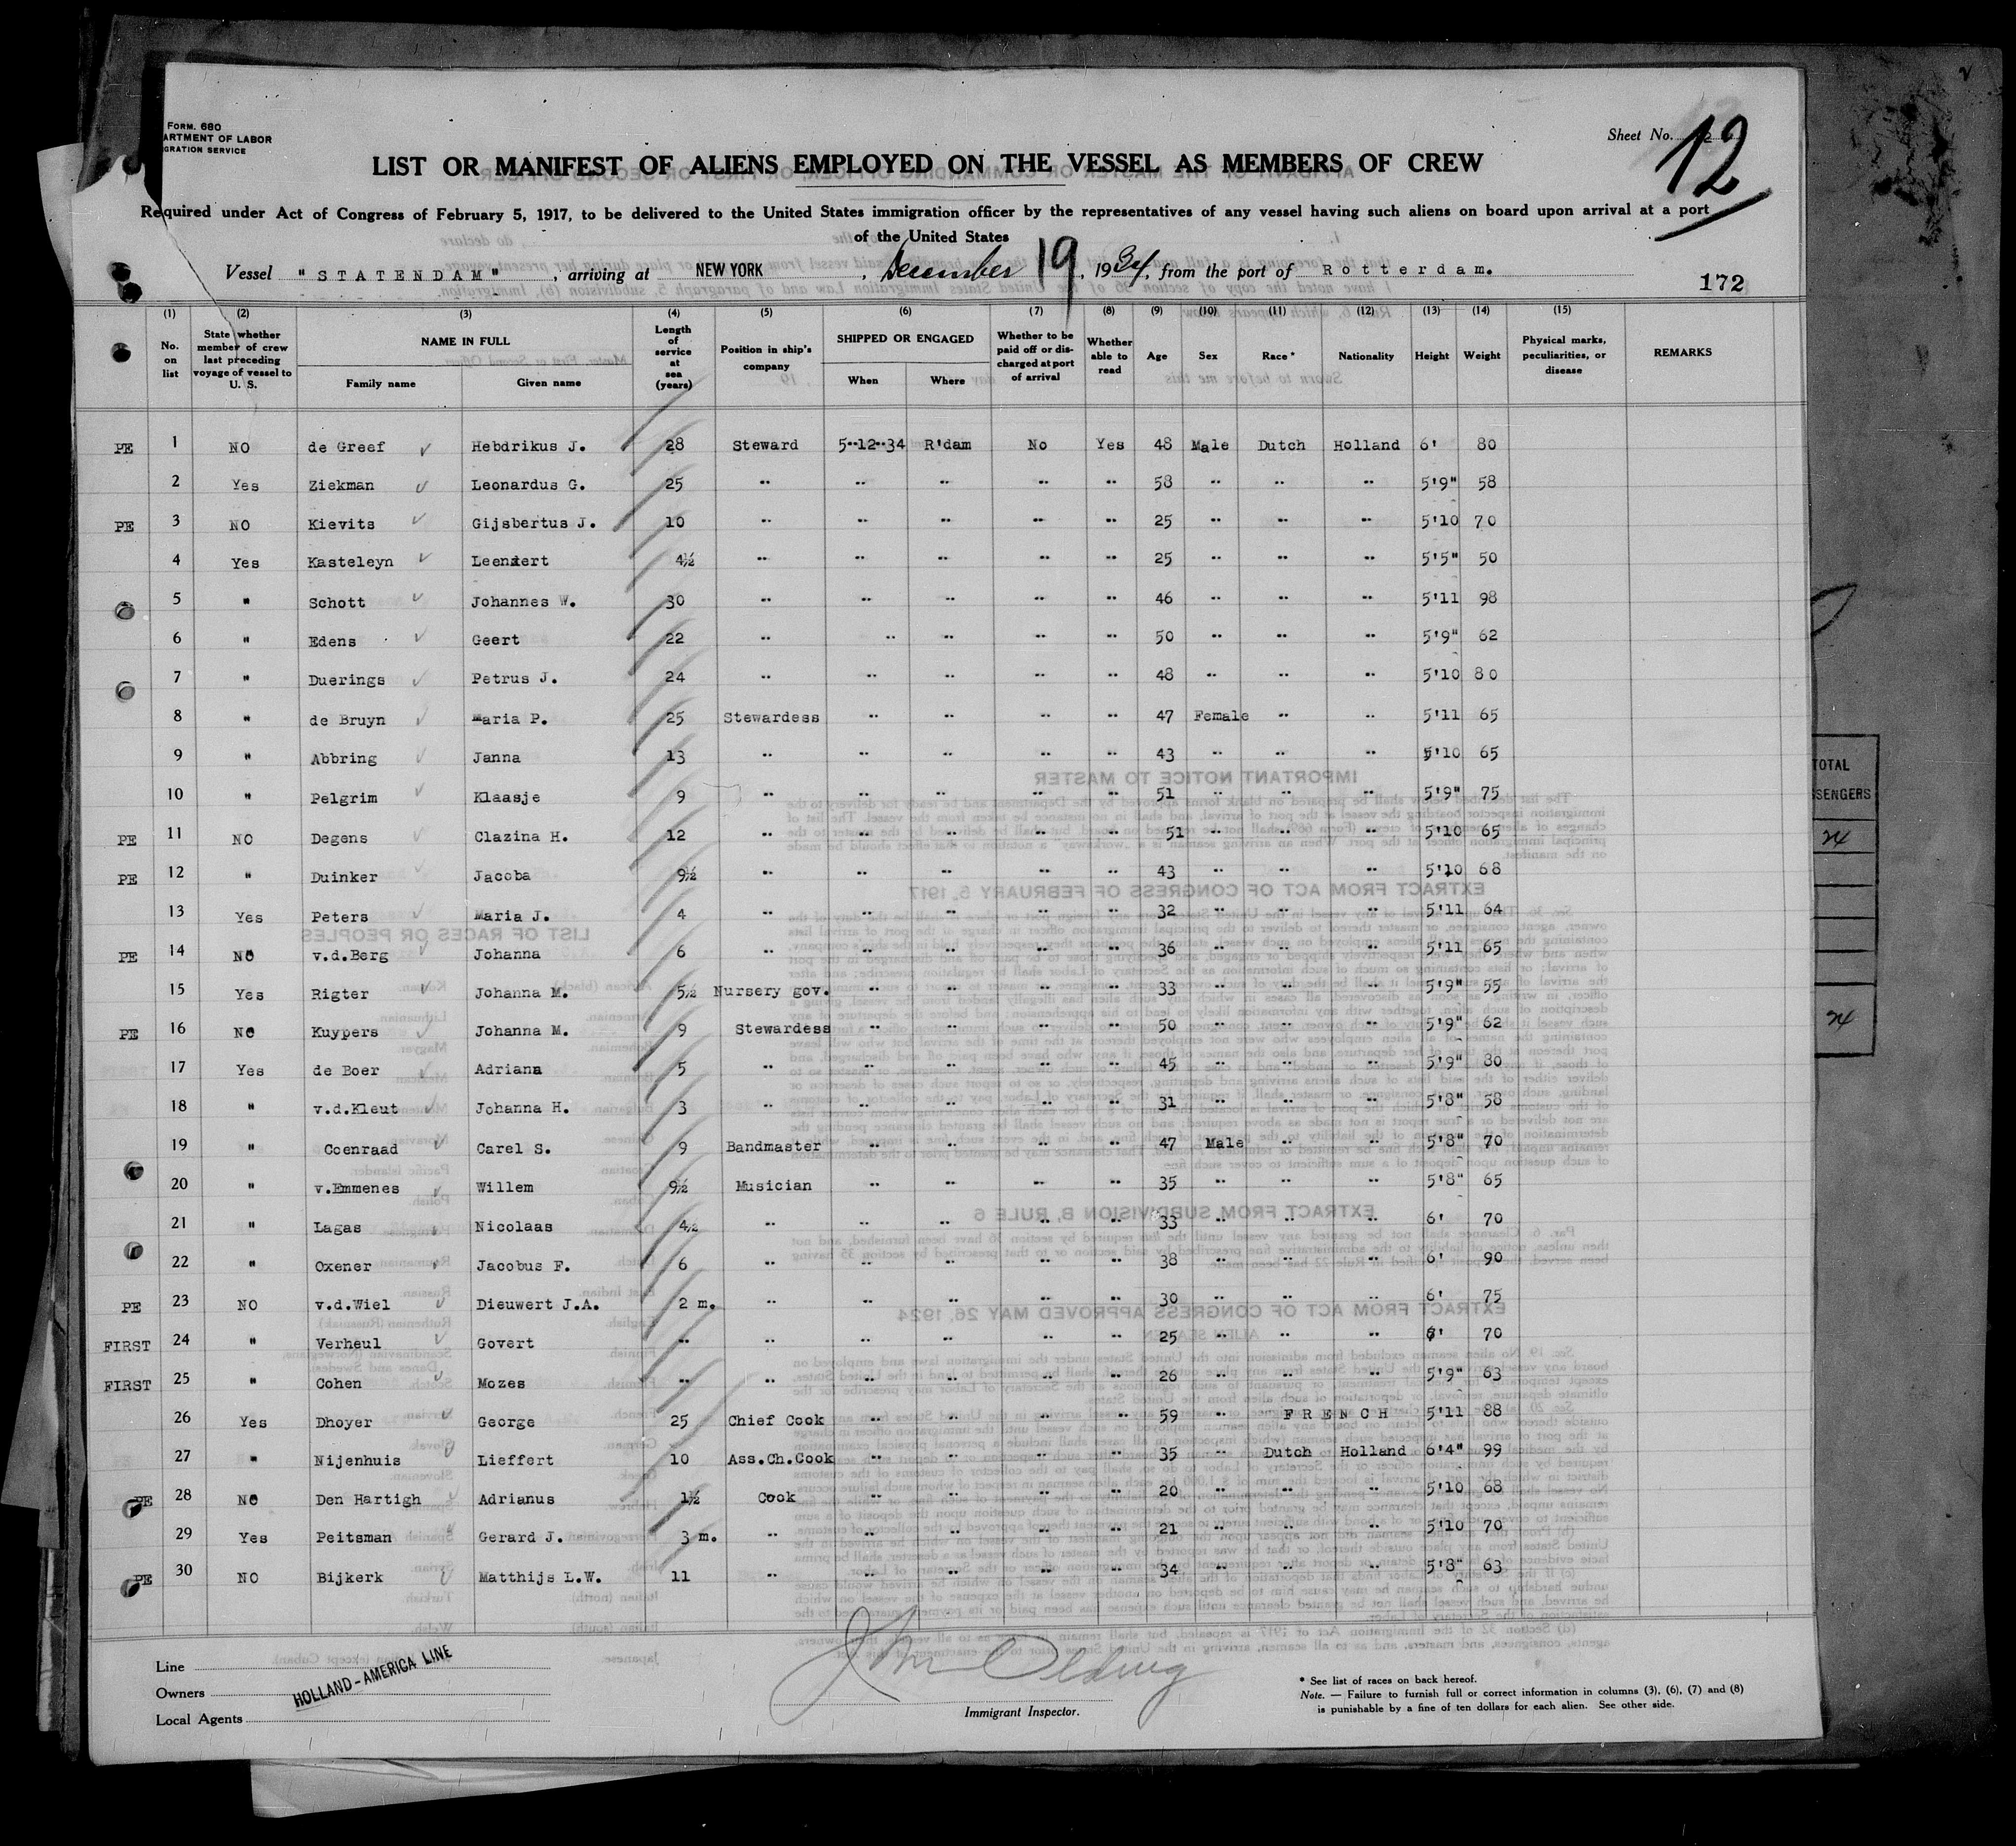 Form. 680
ARTMENT OF LABOR
GRATION SERVICE
Sheet No. 12
LIST OR MANIFEST OF ALIENS EMPLOYED ON THE VESSEL AS MEMBERS OF CREW
Required under Act of Congress of February 5, 1917, to be delivered to the United States immigration officer by the representatives of any vessel having such aliens on board upon arrival at a port
of the United States
Vessel "STATENDAM", arriving at NEW YORK, December 19, 1934, from the port of Rotterdam.
172
(1) (2) (3) (4) (5) (6) (7) (8) (9) (10) (11) (12) (13) (14) (15)
No. on list | State whether member of crew last preceding voyage of vessel to U. S. | NAME IN FULL | Family name | Given name | Length of service at sea (years) | Position in ship's company | SHIPPED OR ENGAGED | When | Where | Whether to be paid off or discharged at port of arrival | Whether able to read | Age | Sex | Race * | Nationality | Height | Weight | Physical marks, peculiarities, or disease | REMARKS
PE 1 NO de Greef Hebdrikus J. 28 Steward 5-12-34 R'dam No Yes 48 Male Dutch Holland 6' 80
2 Yes Ziekman Leonardus G. 25 " " " " " 58 " " " 5'9" 58
PE 3 NO Kievits Gijsbertus J. 10 " " " " " 25 " " " 5'10 70
4 Yes Kasteleyn Leendert 4½ " " " " " 25 " " " 5'5" 50
5 " Schott Johannes W. 30 " " " " " 46 " " " 5'11 98
6 " Edens Geert 22 " " " " " 50 " " " 5'9" 62
7 " Duerings Petrus J. 24 " " " " " 48 " " " 5'10 80
8 " de Bruyn Maria P. 25 Stewardess " " " " 47 Female " " 5'11 65
9 " Abbring Janna 13 " " " " " 43 " " " 5'10 65
10 " Pelgrim Klaasje 9 " " " " " 51 " " " 5'9" 75
PE 11 NO Degens Clazina H. 12 " " " " " 51 " " " 5'10 65
PE 12 " Duinker Jacoba 9½ " " " " " 43 " " " 5'10 68
13 Yes Peters Maria J. 4 " " " " " 32 " " " 5'11 64
PE 14 NO v.d.Berg Johanna 6 " " " " " 36 " " " 5'11 65
15 Yes Rigter Johanna M. 5½ Nursery gov. " " " " 33 " " " 5'9" 55
PE 16 NO Kuypers Johanna M. 9 Stewardess " " " " 50 " " " 5'9" 62
17 Yes de Boer Adriana 5 " " " " " 45 " " " 5'9" 80
18 " v.d.Kleut Johanna H. 3 " " " " " 31 " " " 5'8" 58
19 " Coenraad Carel S. 9 Bandmaster " " " " 47 Male " " 5'8" 70
20 " v.Emmenes Willem 9½ Musician " " " " 35 " " " 5'8" 65
21 " Lagas Nicolaas 4½ " " " " " 33 " " " 6' 70
22 " Oxener Jacobus F. 6 " " " " " 38 " " " 6' 90
PE 23 NO v.d.Wiel Dieuwert J.A. 2 m. " " " " " 30 " " " 6' 75
FIRST 24 " Verheul Govert " " " " " " 25 " " " 6' 70
FIRST 25 " Cohen Mozes " " " " " " 26 " " " 5'9" 63
26 Yes Dhoyer George 25 Chief Cook " " " " 59 " FRENCH 5'11 88
27 " Nijenhuis Lieffert 10 Ass.Ch.Cook " " " " 35 " Dutch Holland 6'4" 99
PE 28 NO Den Hartigh Adrianus 1½ Cook " " " " 20 " " " 5'10 68
29 Yes Peitsman Gerard J. 3 m. " " " " " 21 " " " 5'10 70
PE 30 NO Bijkerk Matthijs L.W. 11 " " " " " 34 " " " 5'8" 63
Line
Owners HOLLAND-AMERICA LINE
Local Agents
Immigrant Inspector.
* See list of races on back hereof.
Note. — Failure to furnish full or correct information in columns (3), (6), (7) and (8)
is punishable by a fine of ten dollars for each alien. See other side.
TOTAL
SSENGERS